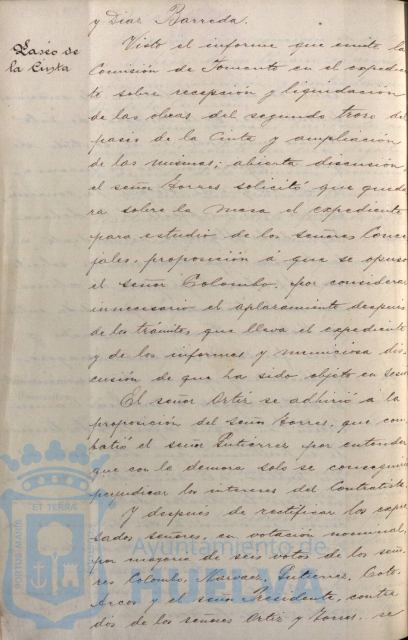 y Díaz Barreda.
Paseo de
la Cinta
Visto el informe que emite la
Comisión de Fomento en el expedien-
te sobre recepción y liquidación
de las obras del segundo trozo del
paseo de la Cinta y ampliación
de las mismas; abierta discusión
el señor Torres solicitó que queda-
ra sobre la mesa el expediente
para estudio de los señores Conce-
jales, proposición a que se opuso
el señor Colombo, por considerar
innecesario el aplazamiento después
de los trámites que lleva el expediente
y de los informes y minuciosa dis-
cusión de que ha sido objeto en sesio
El señor Ortiz se adhirió á la
proposición del señor Torres, que com-
batió el señor Gutiérrez por entender
que con la demora solo se conseguiría
perjudicar los intereses del Contratista.
Y después de rectificar los expre-
sados señores, en votación nominal,
por mayoría de seis votos de los seño-
res Colombo, Narvaez, Gutierrez, Coto,
Arcos y el señor Presidente, contra
dos de los señores Ortiz y Torres, se
PORTUS MARIS
ET TERRÆ
Ayuntamiento de
HUELVA